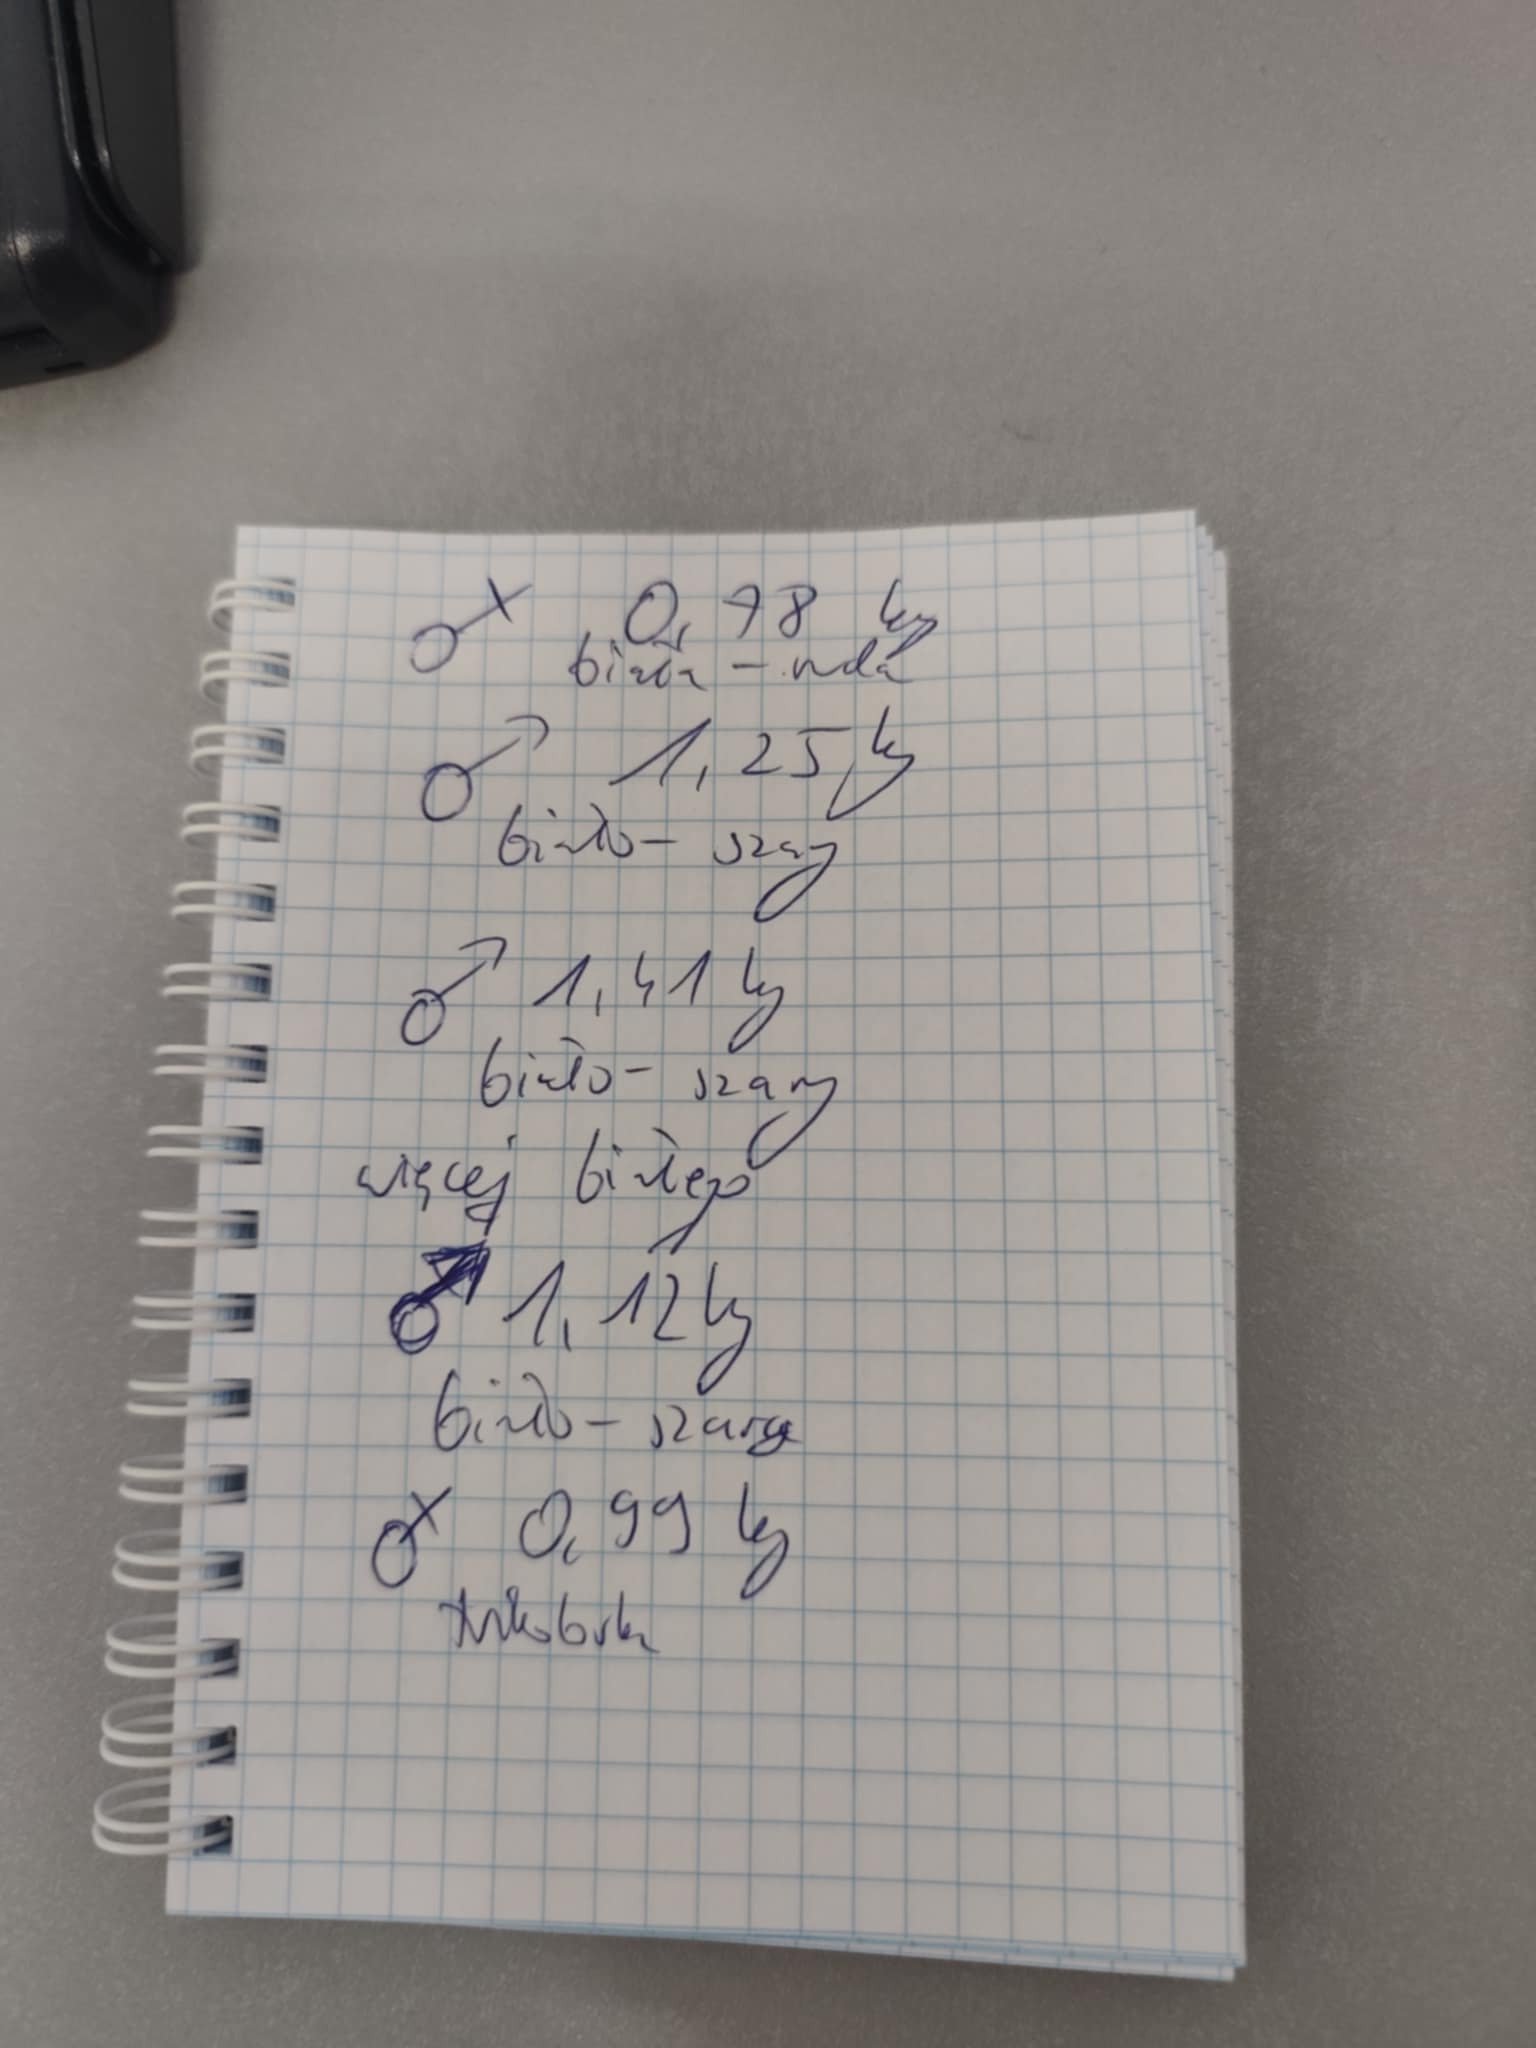 ♀ 0,78 kg
biała - ruda
♂ 1,25 kg
biało - szary
♂ 1,41 kg
biało - szary
więcej białego
♂ 1,12 kg
biało - szary
♀ 0,99 kg
trikolorka